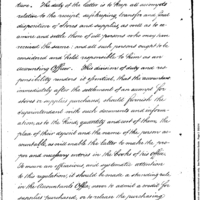 ture. The duty of the latter is to keep all accounts
relative to the receipt, safe keeping, transfer and final
disposition of stores and supplies, as well as to
and settle those of all persons who may have
received the same; and all such persons ought to be
considered and held responsible to them as an
accounting Officer. This division of duty and res-
ponsibility renders it essential, that the accountant
immediately after the settlement of an account for
stores or supplies purchased, should furnish the
Superintendent with such documents and inform-
ation, as to the kind, quantity and cost of them, the
place of their deposit and the name of the person ac-
countable, as will enable the latter to make the pro-
per and necessary entries in the books of his office.
To ensure an efficient and systematic attention
to this regulation, it should be made a standing rule
in the Accountants Office, never to admit a credit for
supplies purchased, or to release the purchasing